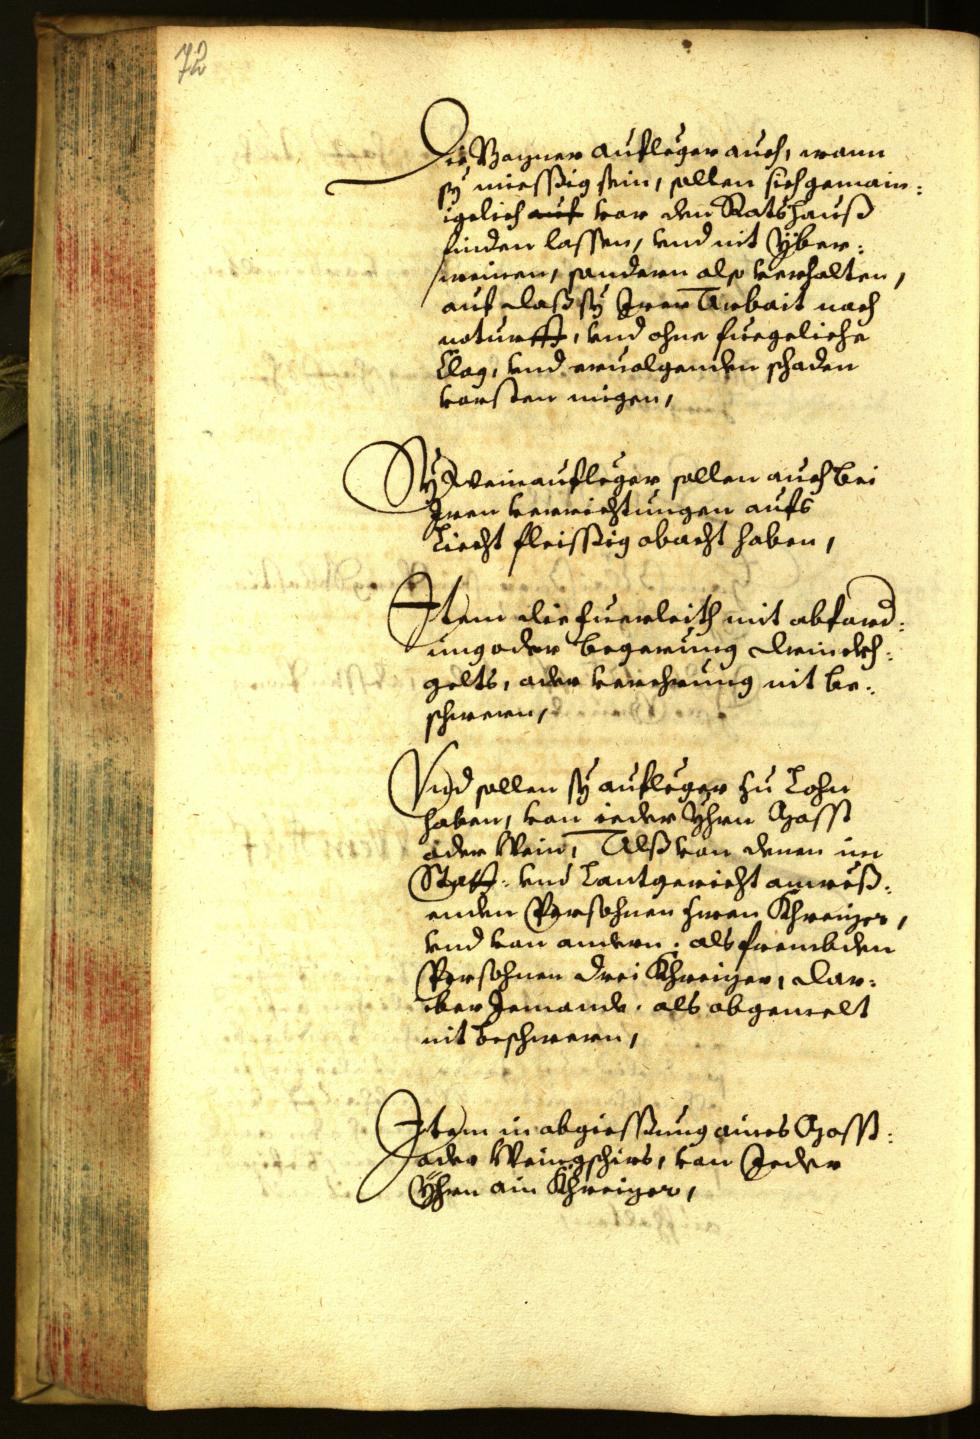 72
Die Bozner Aufleger auch, wann
sy miessig sein, sollen sich gemain:
igelich auf vor den Ratshauß
finden lassen, vnd nit yber:
weinen, sondern also verhalten,
auf daß sy Irer Arbait nach
noturfft, vnd ohne fuegeliche
Clag, vnd ervolgenden schaden
vorsten migen,
Sy Weinaufleger sollen auch bei
Iren verrichtungen aufs
Liecht fleissig obacht haben,
Item die fuerleith mit abford:
ung oder begerung drinckh:
gelts, oder verehrung nit be:
schwern,
Vnd sollen sy aufleger zu Lohn
haben, von ieder Yhrn Most
oder Wein, Alß von denen im
Statt: vnd Lantgericht anweß:
enden Persohnen zwen Khreizer,
vnd von andern: als frembden
Persohnen drei Khreizer, dar:
iber Jemands als obgemelt
nit beschwern,
Item in abgiessung aines Most:
oder Weingschirs, von Jeder
Yhrn ain Khreizer,